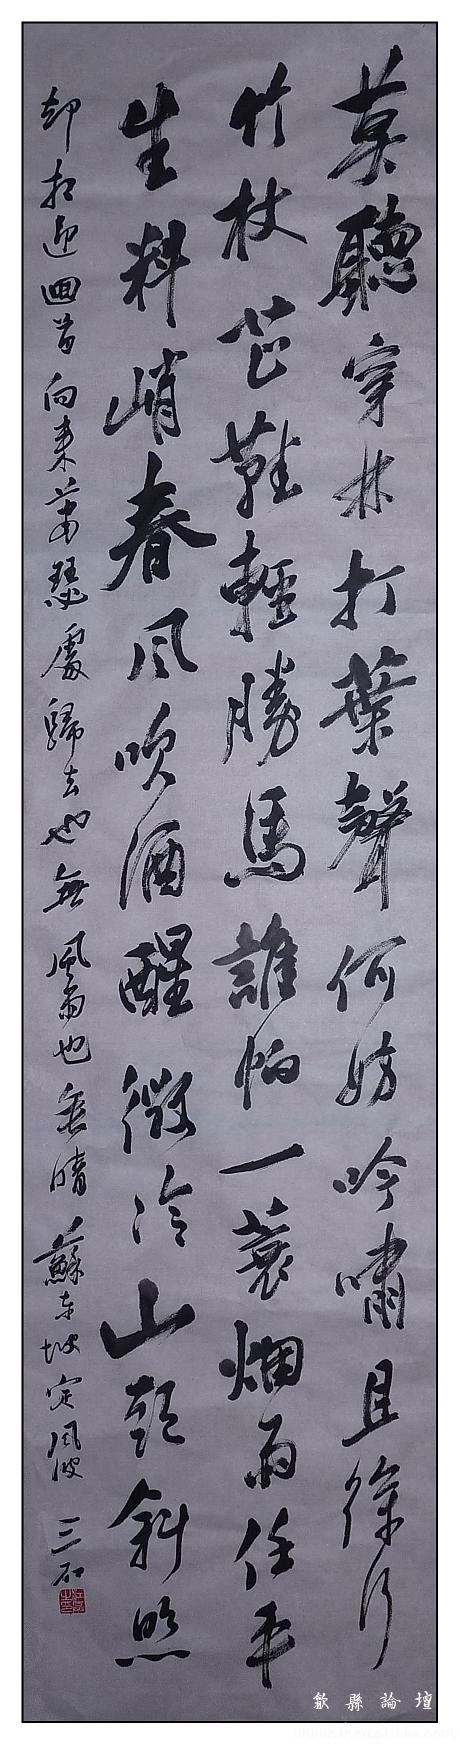 莫聽穿林打葉聲何妨吟嘯且徐行
竹杖芒鞋輕勝馬誰怕一蓑烟雨任平
生料峭春風吹酒醒微冷山頭斜照
却相迎回首向來蕭瑟處歸去也無風雨也無晴 蘇東坡定風波 三石
歙縣論壇